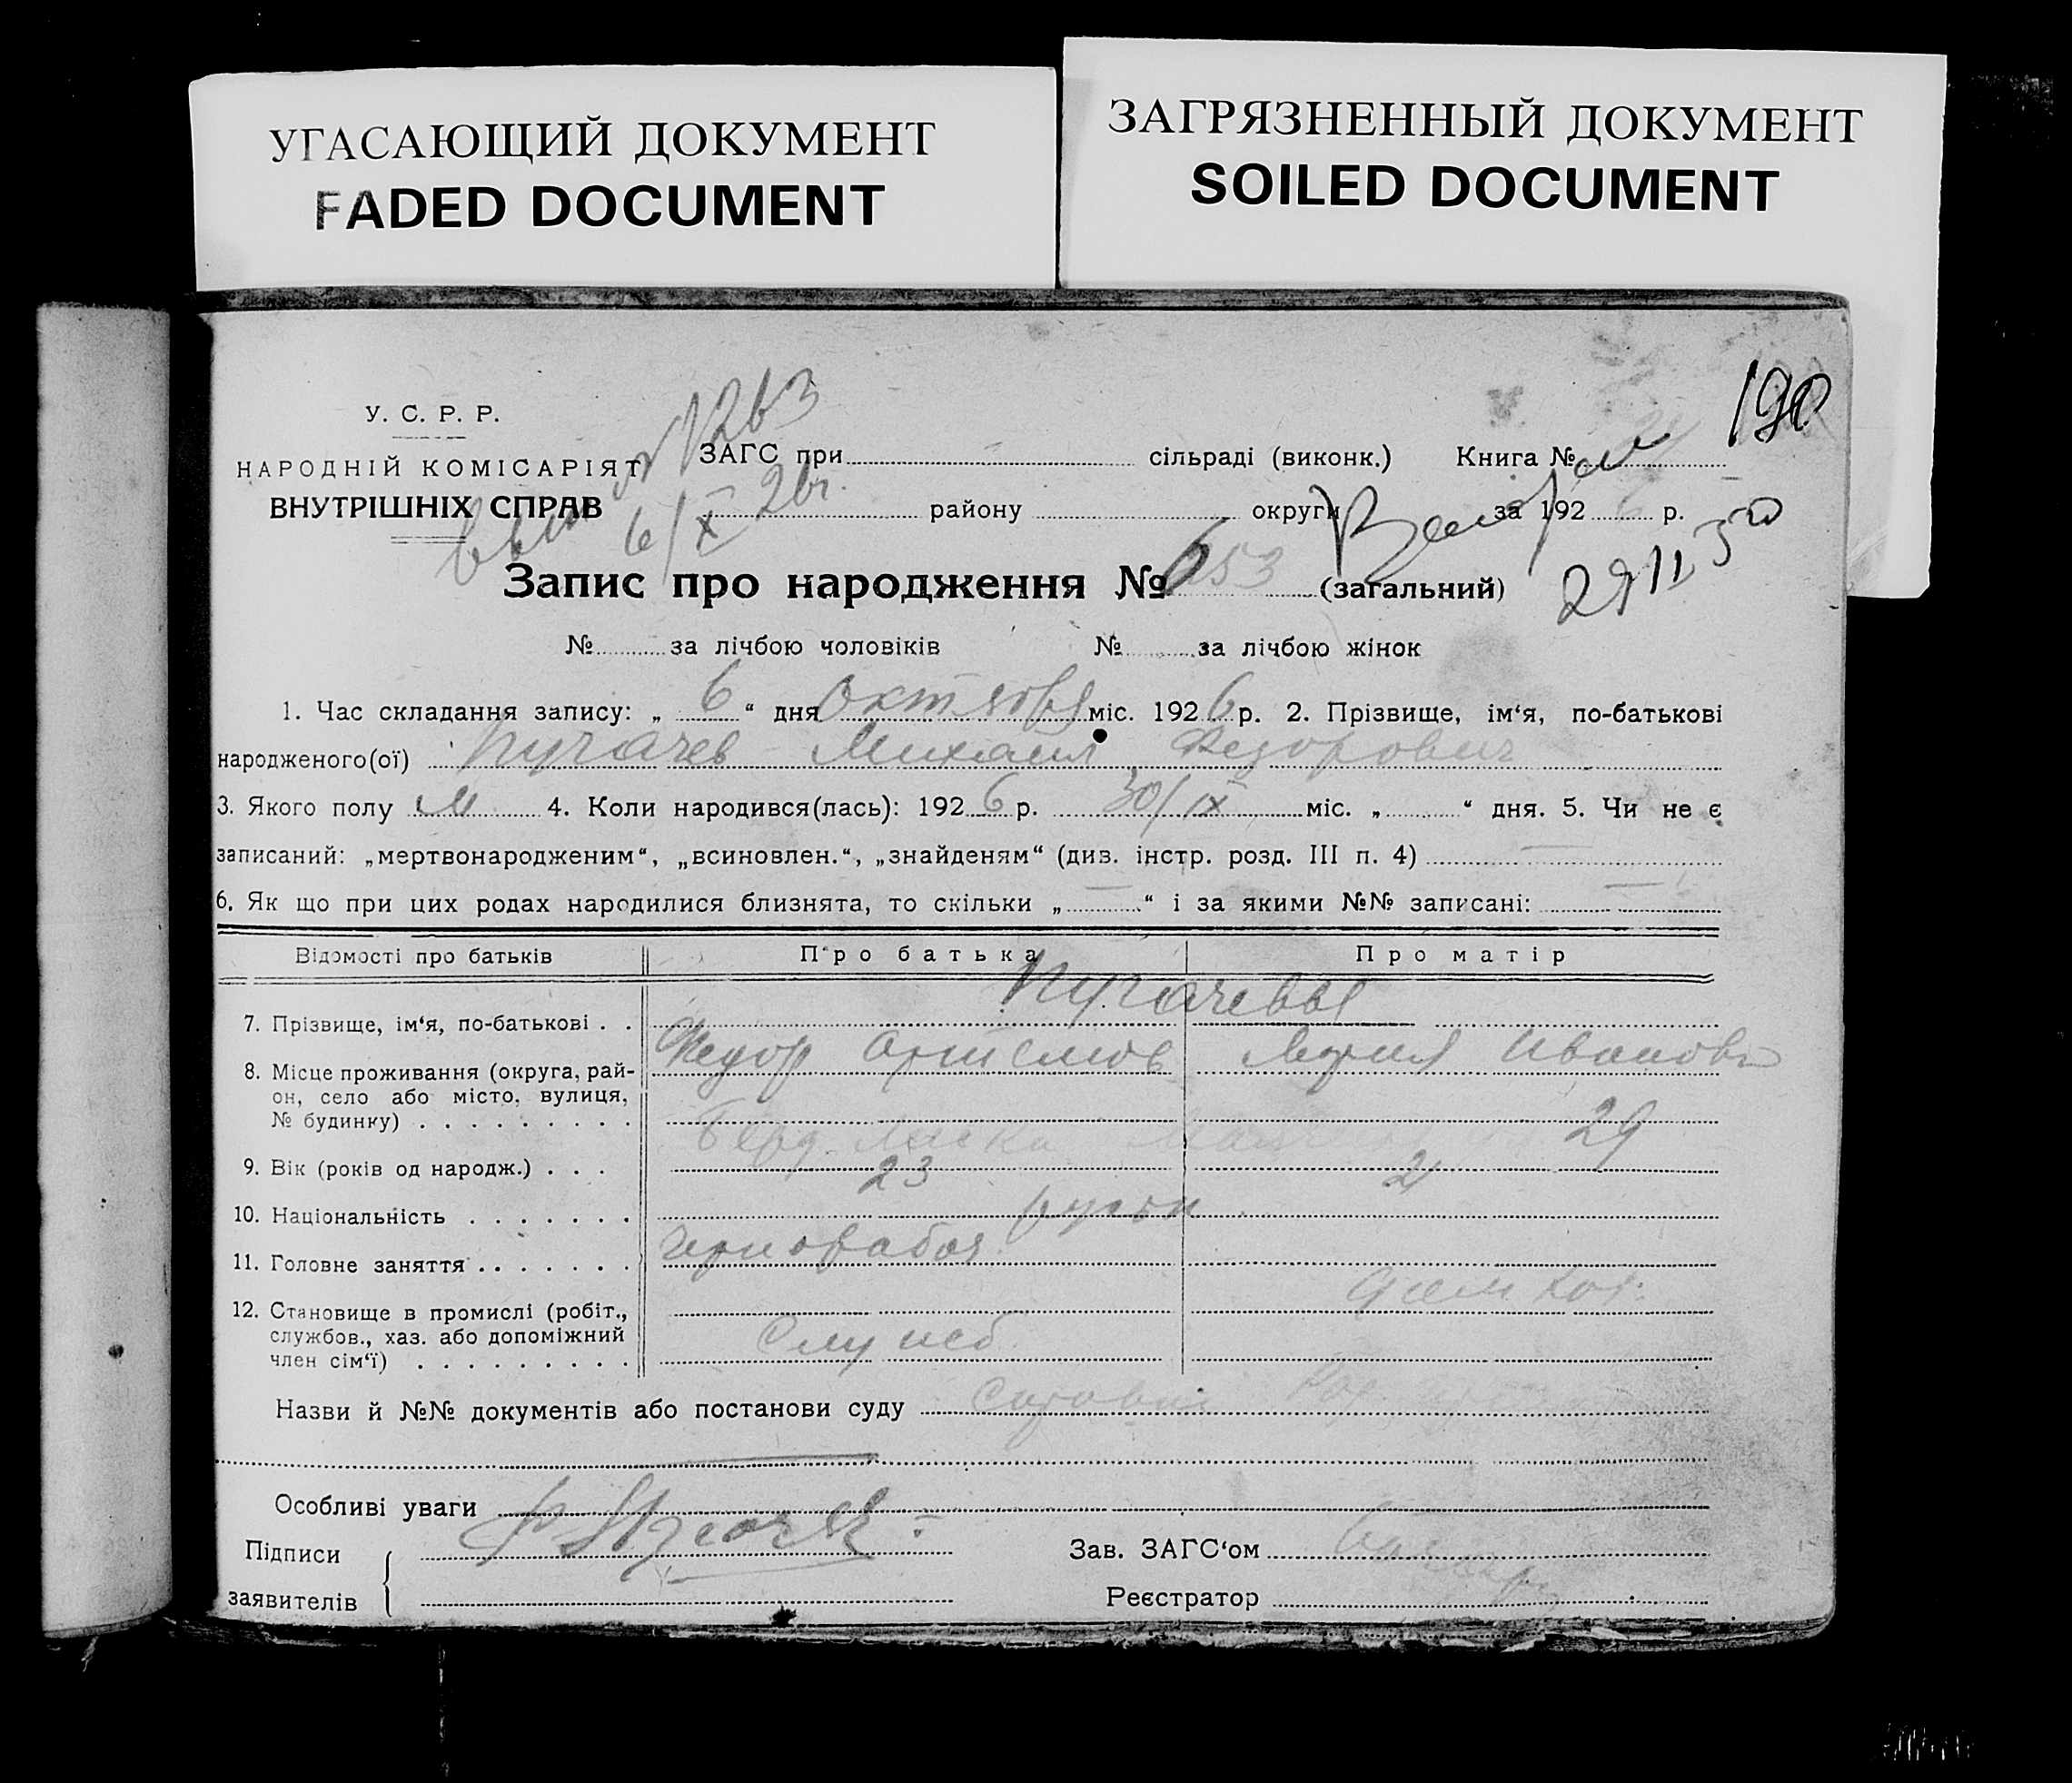 УГАСАЮЩИЙ ДОКУМЕНТ
FADED DOCUMENT
ЗАГРЯЗНЕННЫЙ ДОКУМЕНТ
SOILED DOCUMENT
190
У. С. Р. Р.
НАРОДНІЙ КОМІСАРІЯТ
ВНУТРІШНІХ СПРАВ
№ 1263
6/X 26г.
ЗАГС при сільраді (виконк.) Книга №
району округи за 192 р.
Запис про народження № 653 (загальний)
29 II 50
№ за лічбою чоловіків № за лічбою жінок
1. Час складання запису: „ 6 “ дня Октября міс. 1926 р. 2. Прізвище, ім‘я, по-батькові
народженого(ої) Пугачев Михаил Федорович
3. Якого полу м 4. Коли народився(лась): 1926 р. 30/IX міс. „ “ дня. 5. Чи не є
записаний: „мертвонародженим“, „всиновлен.“, „знайденям“ (див. інстр. розд. III п. 4) —
6. Як що при цих родах народилися близнята, то скільки „ — “ і за якими №№ записані: —
Відомості про батьків Про батька Про матір
Пугачевы
7. Прізвище, ім‘я, по-батькові . .
Федор Мария Иванов
8. Місце проживання (округа, рай-
он, село або місто, вулиця,
№ будинку) . . . . . . . . .
29
9. Вік (років од народж.) . . .
23 21
10. Національність . . . . . . .
русск
11. Головне заняття . . . . . . .
чернораб
12. Становище в промислі (робіт.,
службов., хаз. або допоміжний
член сім‘ї) . . . . . . . . .
Служб
Назви й №№ документів або постанови суду
Особливі уваги
Підписи
заявителів
Зав. ЗАГС‘ом
Реєстратор